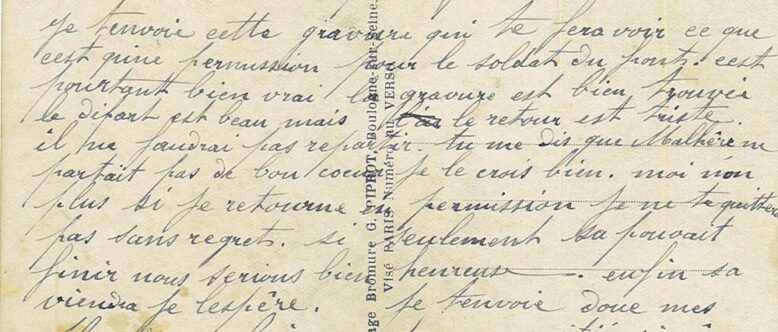 Je tenvoie cette gravure qui te fera voir ce que
cest quine permission pour le soldat du front. cest
pourtant bien vrai la gravure est bien trouvée
le dipart est beau mais le retour est triste.
il me faudrai pas repartir. tu me dis que ne
partait pas de bon coeur je le crois bien. moi non
plus si je retourne en permission je ne te quitterai
pas sans regret. si seulement sa pouvait
finir nous serions bien heureux. enfin sa
viendra je lespêre. Je tenvoie donc mes
nge Bromure G. PIPROT, Boulogne-sur-Seine.
Visé PARIS Numéro au VERSO